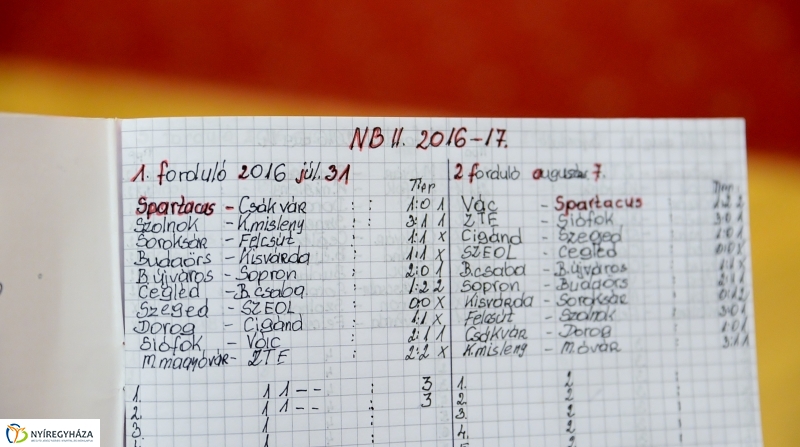 NB II. 2016-17.
1. forduló 2016 júl. 31
Tipp
Spartacus - Csákvár : : 1:0 1
Szolnok - K.misleny : : 3:1 1
Soroksár - Felcsút : 1:1 X
Budaörs - Kisvárda : 1:1 X
B.újváros - Sopron : 2:0 1
Cegléd - B.csaba : 1:2 2
Szeged - SZEOL : 0:0 X
Dorog - Cigánd : 1:1 X
Siófok - Vác : 2:1 1
M.magyóvár - ZTE : 2:2 X
1. 1 1 - - : 3
2. 1 1 - - : 3
3. 1
2 forduló augusztus 7.
Tipp
Vác - Spartacus : 1:2 2
ZTE - Siófok : 3:0 1
Cigánd - Szeged : 1:0 1
SZEOL - Cegléd : 0:0 X
B.csaba - B.újváros
Sopron - Budaörs
Kisvárda - Soroksár
Felcsút - Szolnok : 3:0 1
Csákvár - Dorog : 1:0 1
K.misleny - M.óvár : 3:1 1
1. 2
2. 2
3. 2
4. 2
NYÍREGYHÁZA